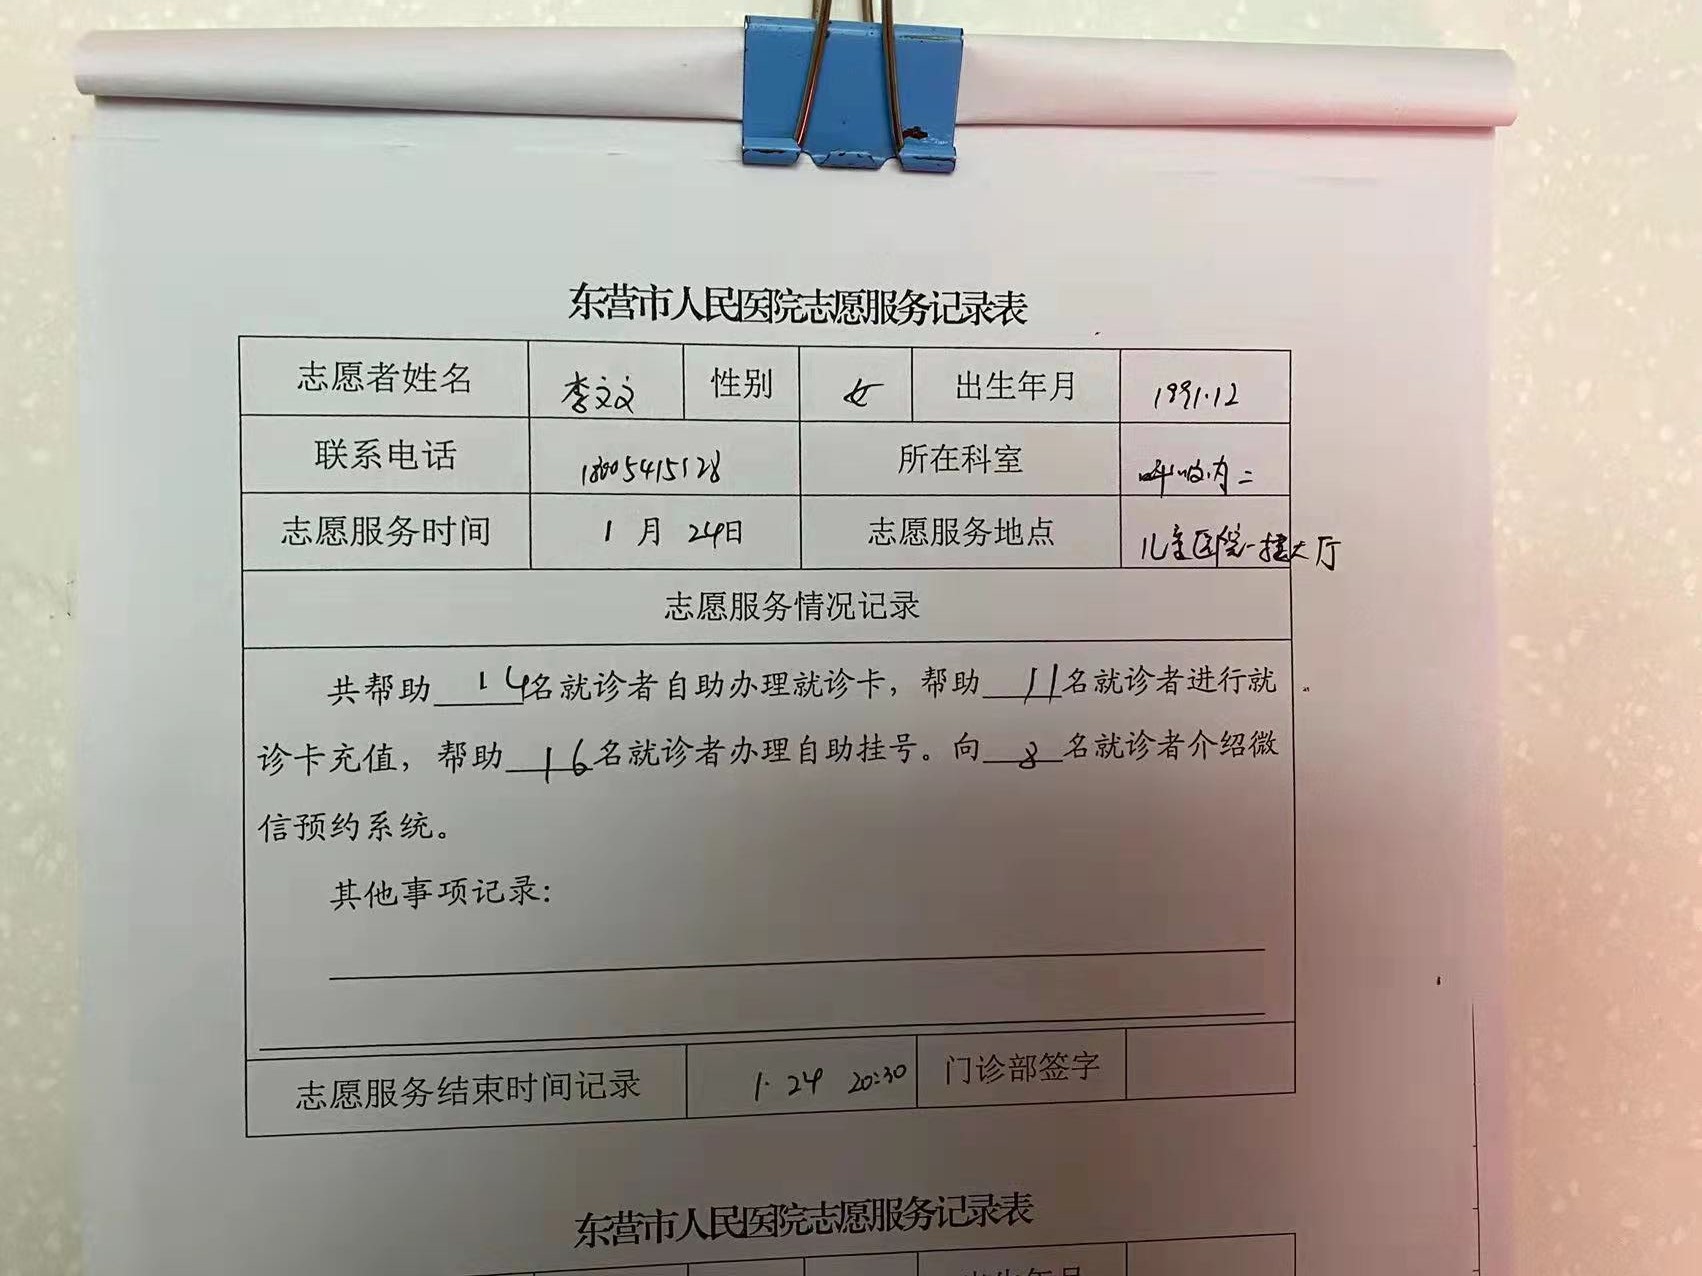 东营市人民医院志愿服务记录表
志愿者姓名 李文文 性别 女 出生年月 1991.12
联系电话 18005415128 所在科室 呼吸内二
志愿服务时间 1 月 24日 志愿服务地点 儿童医院一楼大厅
志愿服务情况记录
共帮助 14 名就诊者自助办理就诊卡，帮助 11 名就诊者进行就
诊卡充值，帮助 16 名就诊者办理自助挂号。向 8 名就诊者介绍微
信预约系统。
其他事项记录：
志愿服务结束时间记录 1.24 20:30 门诊部签字
东营市人民医院志愿服务记录表
出生年月